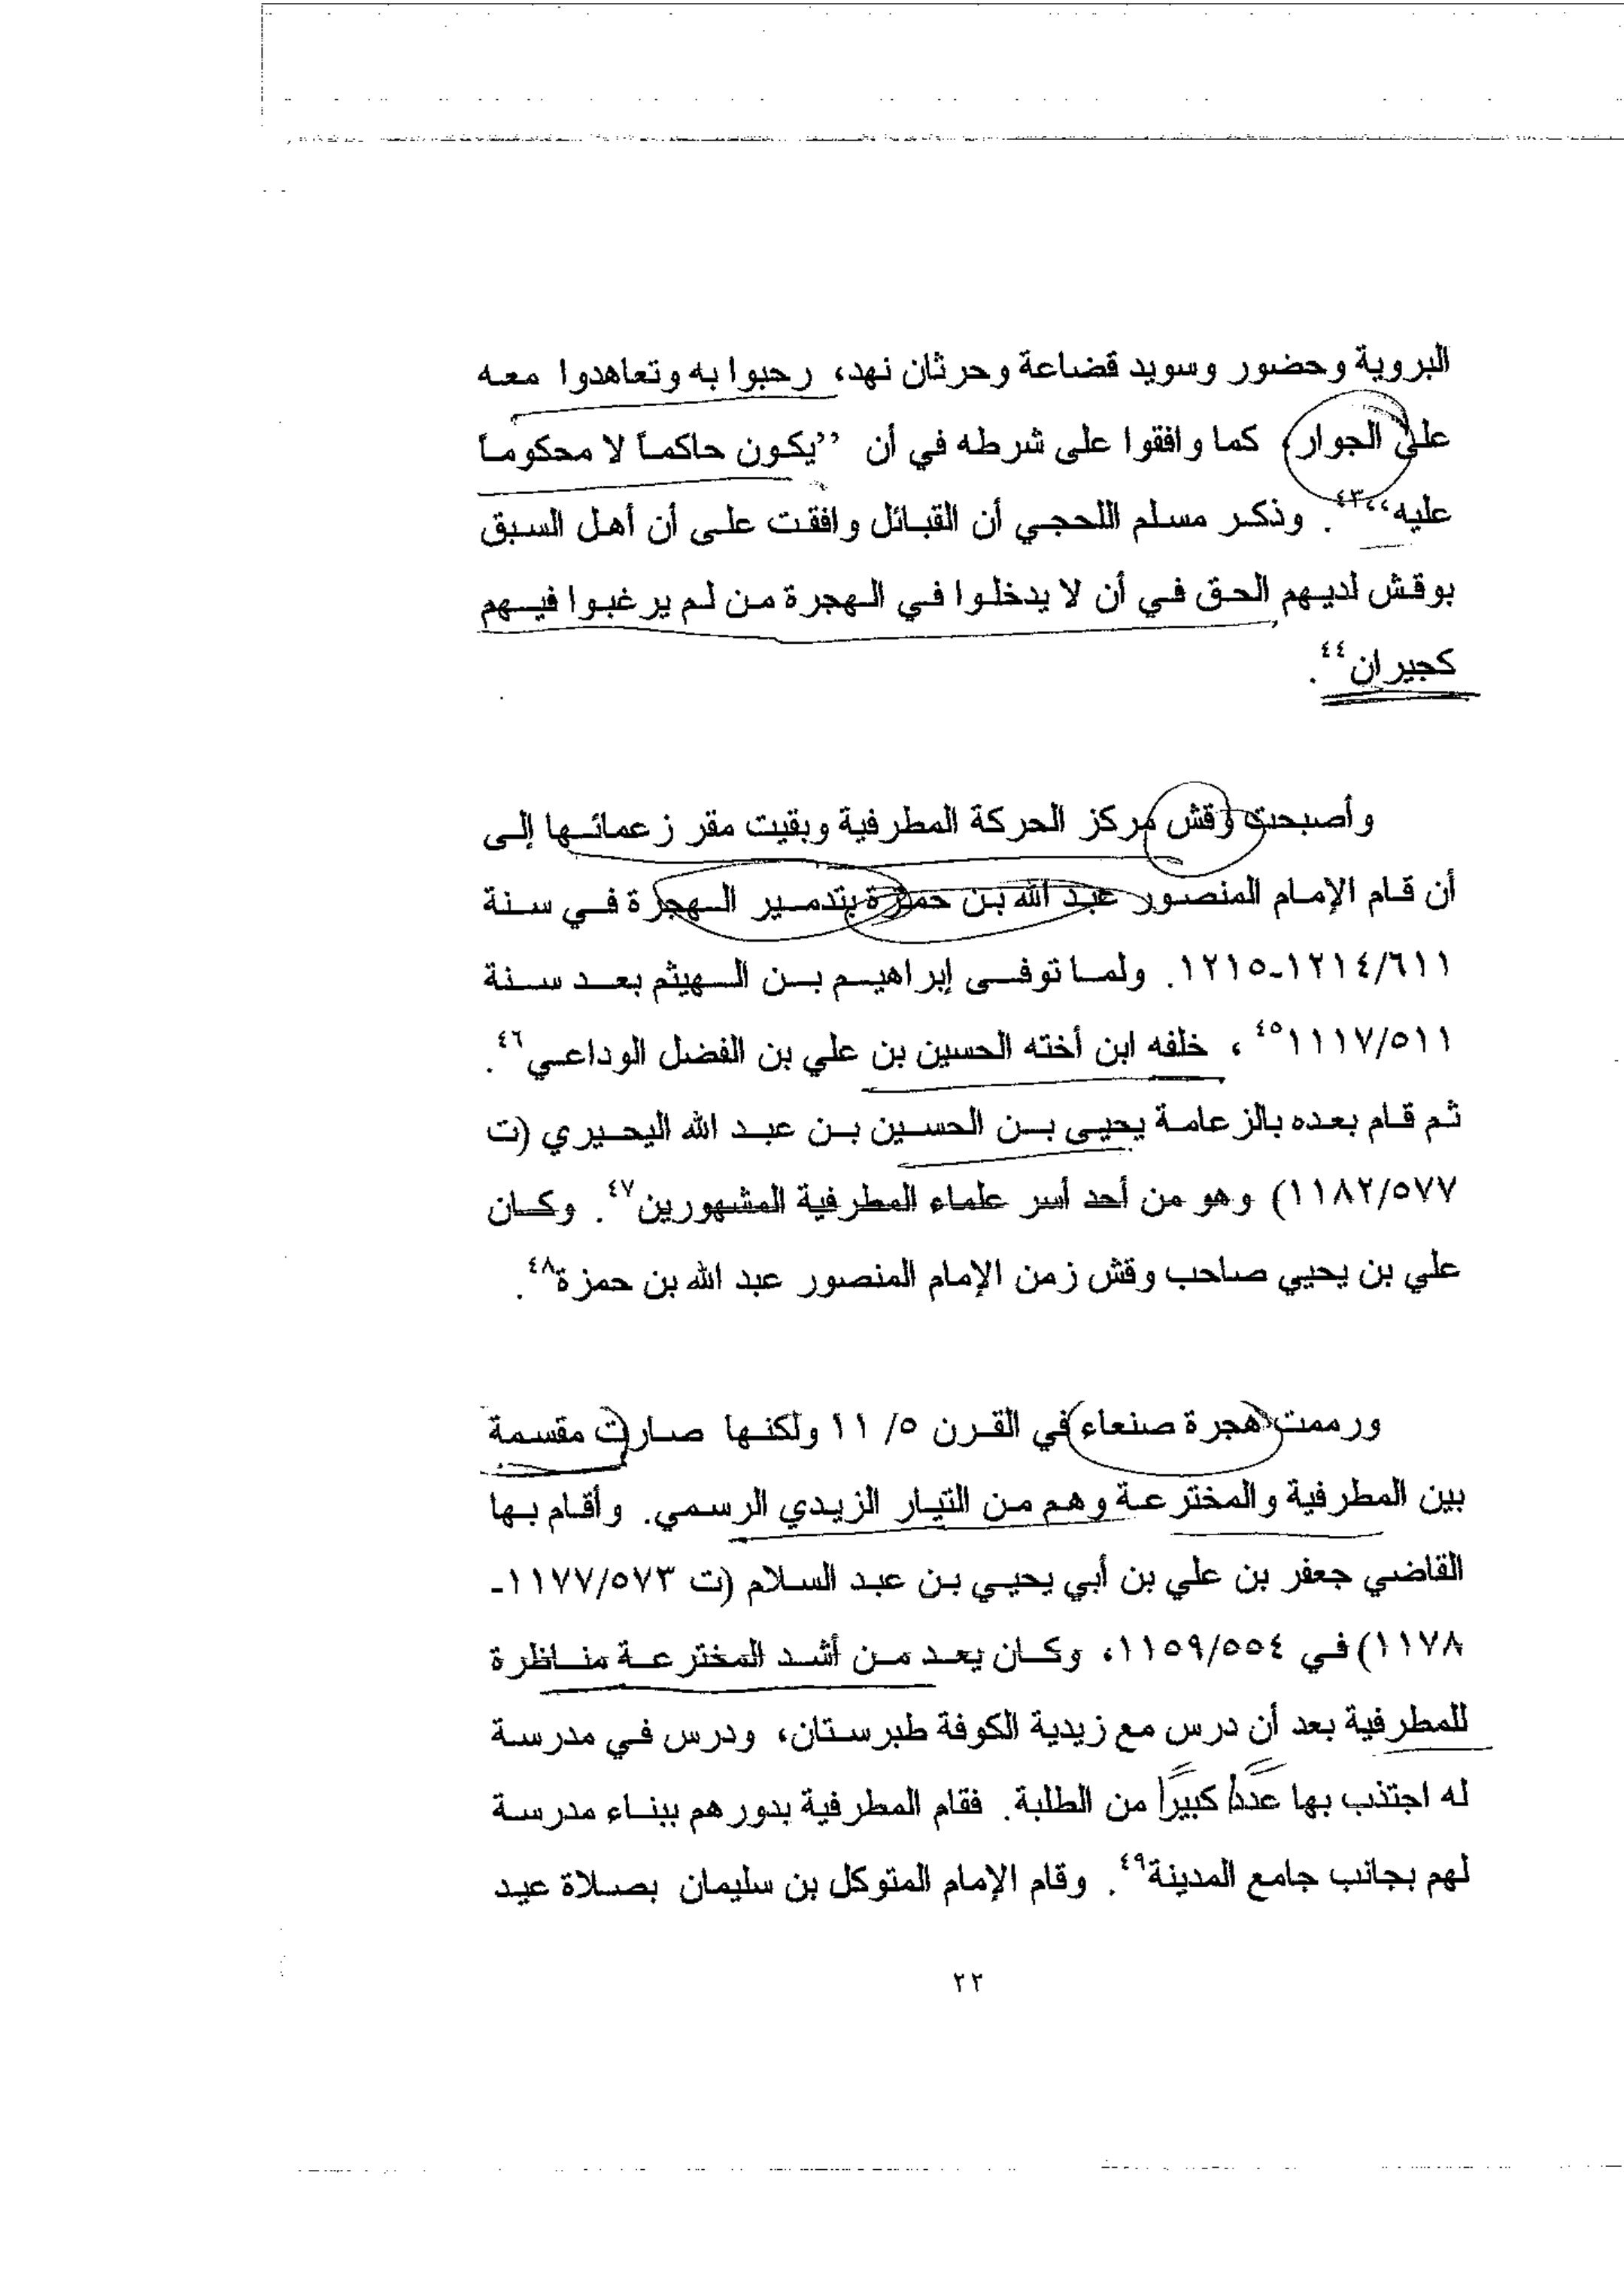 البروية وحضور وسويد قضاعة وحرثان نهد، رحبوا به وتعاهدوا معه
على الجوار، كما وافقوا على شرطه في أن ’’يكون حاكماً لا محكوماً
عليه‘‘٤٣. وذكر مسلم اللحجي أن القبائل وافقت على أن أهل السبق
بوقش لديهم الحق في أن لا يدخلوا في الهجرة من لم يرغبوا فيهم
كجيران٤٤.
وأصبحت وقش مركز الحركة المطرفية وبقيت مقر زعمائها إلى
أن قام الإمام المنصور عبد الله بن حمزة بتدمير الهجرة في سنة
٦١١/١٢١٤-١٢١٥. ولما توفى إبراهيم بن الهيثم بعد سنة
٥١١/١١١٧٤٥، خلفه ابن أخته الحسين بن علي بن الفضل الوداعي٤٦.
ثم قام بعده بالزعامة يحيى بن الحسين بن عبد الله اليحيري (ت
٥٧٧/١١٨٢) وهو من أحد أسر علماء المطرفية المشهورين٤٧. وكان
علي بن يحيي صاحب وقش زمن الإمام المنصور عبد الله بن حمزة٤٨.
ورممت هجرة صنعاء في القرن ٥/ ١١ ولكنها صارت مقسمة
بين المطرفية والمخترعة وهم من التيار الزيدي الرسمي. وأقام بها
القاضي جعفر بن علي بن أبي يحيي بن عبد السلام (ت ٥٧٣/١١٧٧-
١١٧٨) في ٥٥٤/١١٥٩، وكان يعد من أشد المخترعة مناظرة
للمطرفية بعد أن درس مع زيدية الكوفة طبرستان، ودرس في مدرسة
له اجتذب بها عدداً كبيراً من الطلبة. فقام المطرفية بدورهم ببناء مدرسة
لهم بجانب جامع المدينة٤٩. وقام الإمام المتوكل بن سليمان بصلاة عيد
٢٢